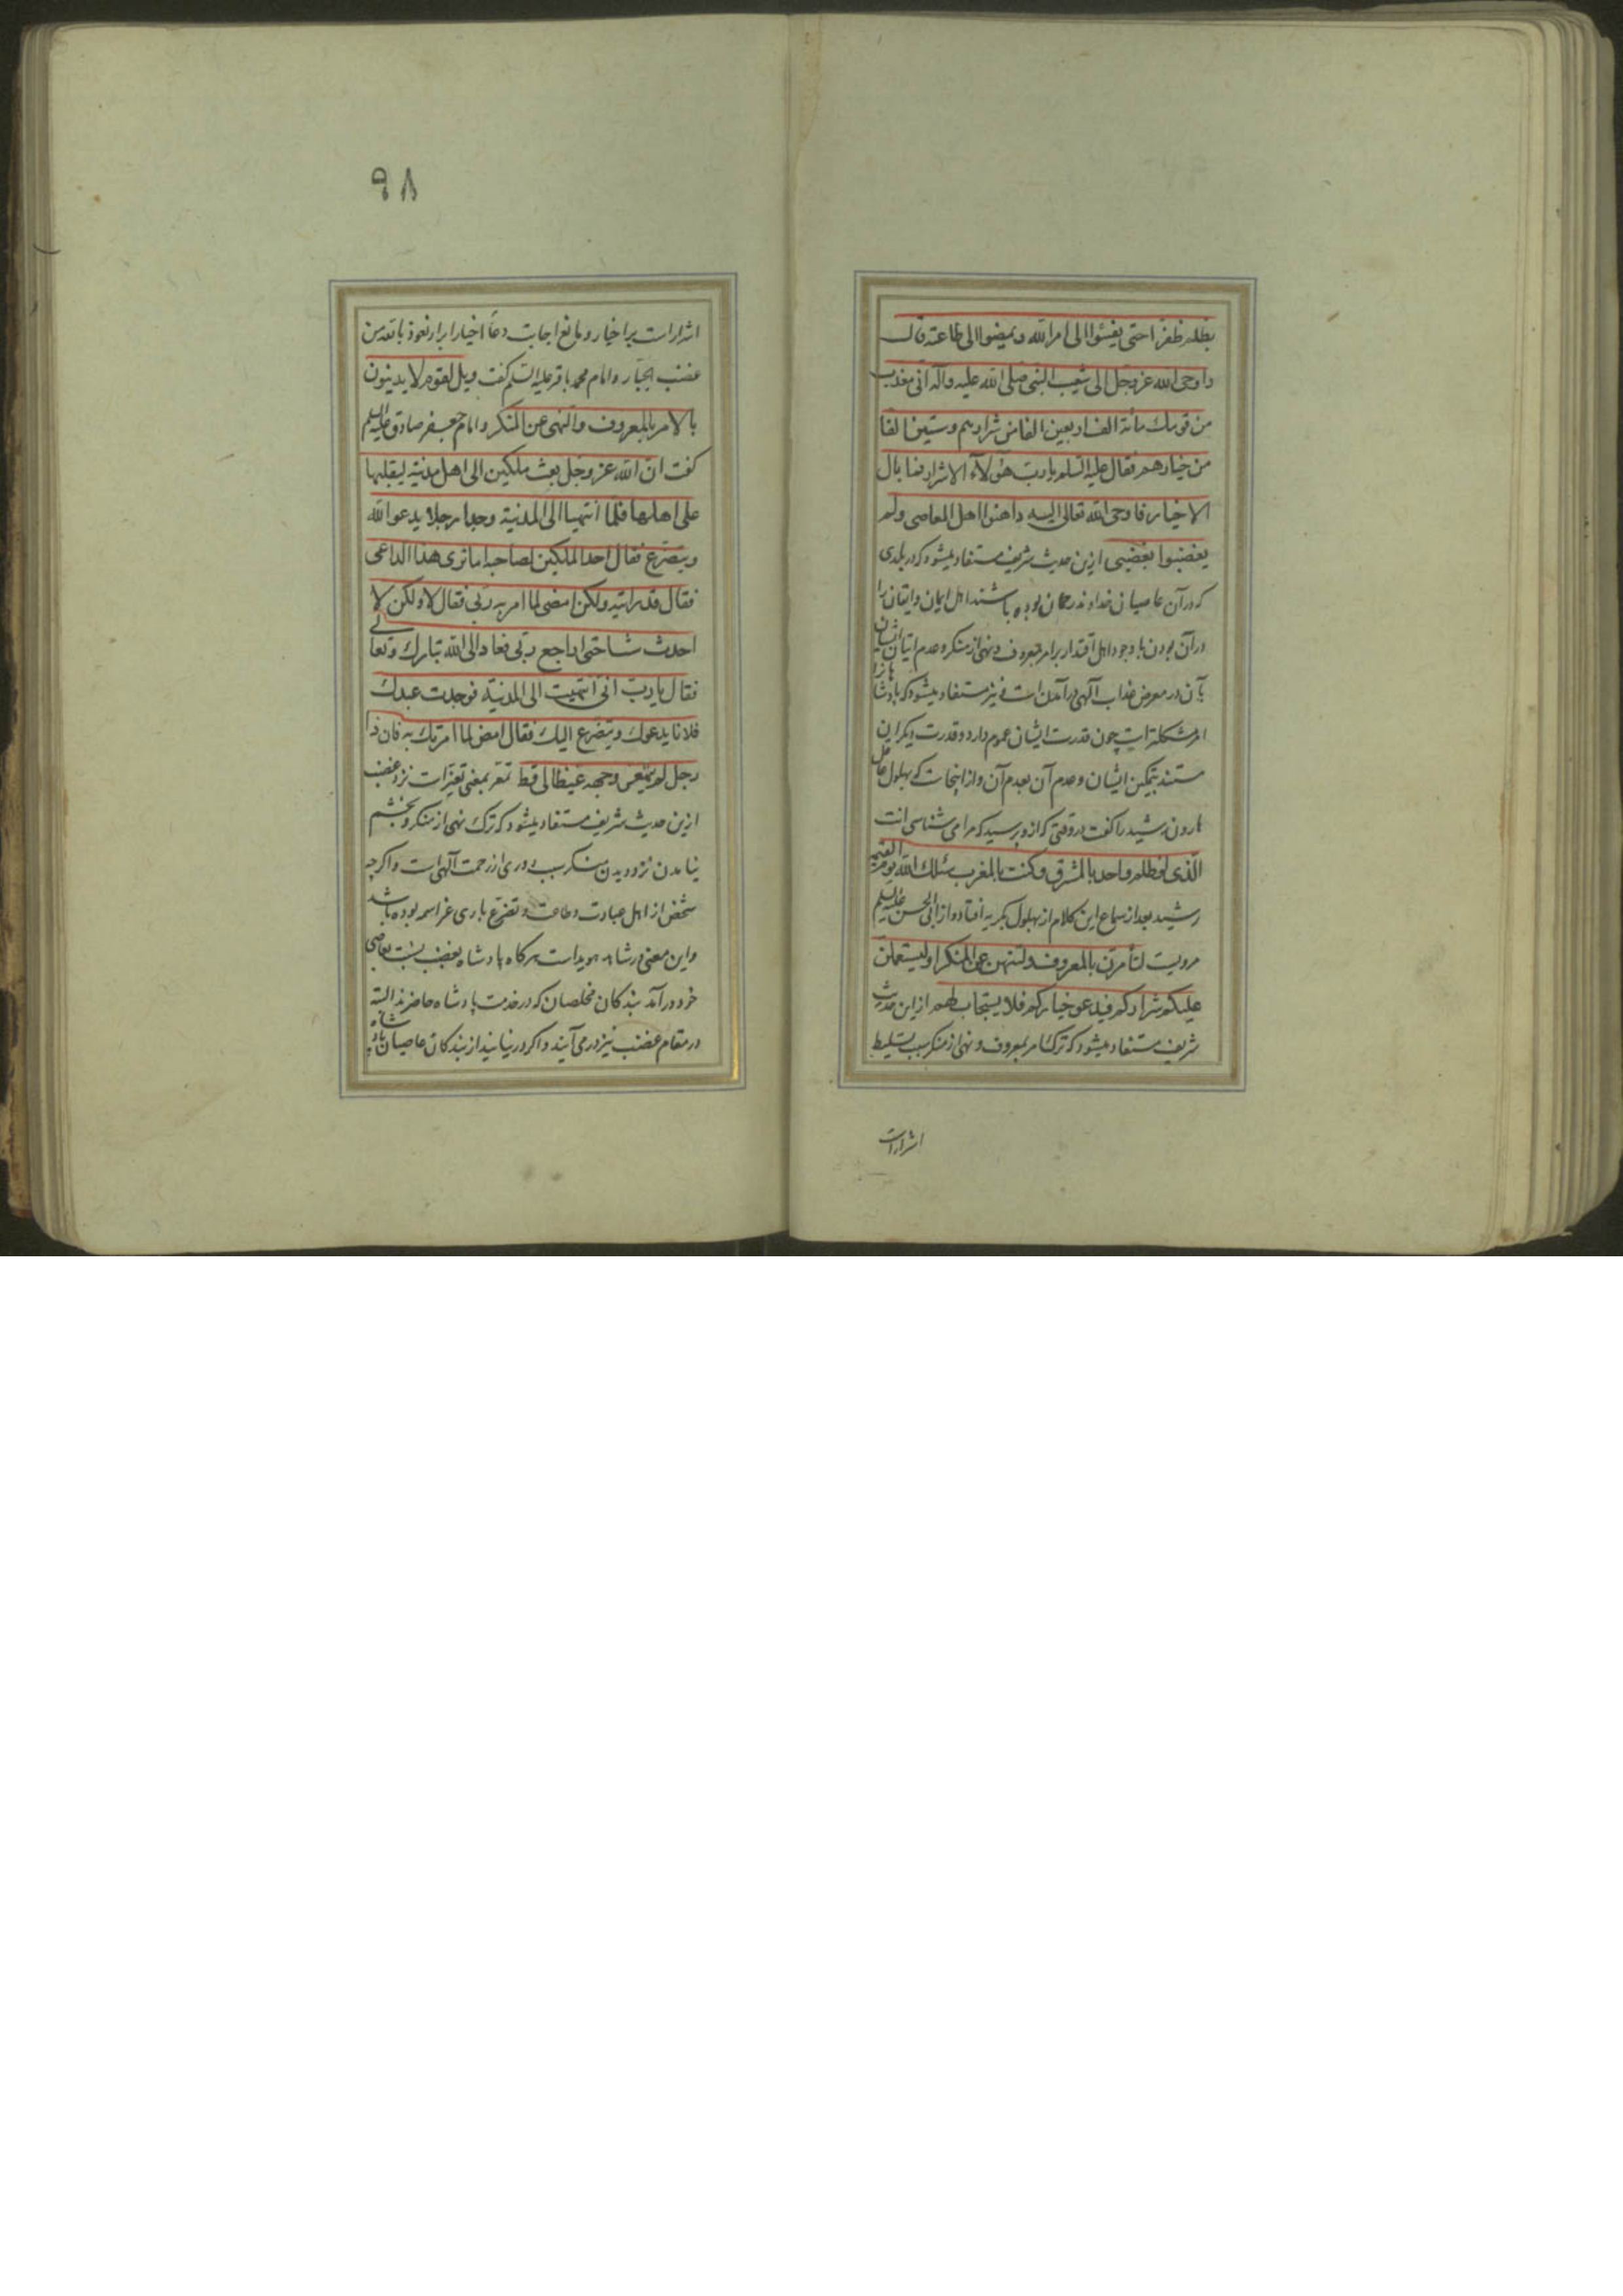 بظلم ظفرا حتی یفیئوا الی امرالله و یمضوا الی طاعته قال
و اوحی الله عزوجل الی شعیب النبی صلی الله علیه و آله انی معذب
من قومك مائة الف اربعین الفا من شرارهم و ستین الفا
من خیارهم فقال علیه السلم یا رب هؤلآء الاشرار فما بال
الاخیار فاوحی الله تعالی الیه داهنوا اهل المعاصی و لم
یغضبوا بغضبی ازین حدیث شریف مستفاد میشود که در بلدی
که در آن عاصیان خداوند رحمان بوده باشند اهل ایمان و ایقان را
در آن بودن با وجود اهل اقتدار بر امر بمعروف و نهی از منکر و عدم اتیان ایشان
بآن در معرض عذاب آلهی در آمدن است و نیز مستفاد میشود که پادشاهانرا
امر مشکلتر است چون قدرت ایشان عموم دارد و قدرت دیگران
مستند بتمکین ایشان و عدم آن بعدم آن و از اینجاست که بهلول عاقل
هارون رشید را گفت در وقتی که ازو پرسید که مرا می شناسی انت
الذی لو ظلم واحد بالمشرق و كنت بالمغرب سئلك الله یوم القیمة
رشید بعد از سماع این کلام از بهلول بگریه افتاد و از ابی الحسن علیه السلم
مرویست لتأمرن بالمعروف و لتنهن عن المنکر او لیستعملن
علیکم شرارکم فیدعو خیارکم فلا یستجاب لهم از این حدیث
شریف مستفاد میشود که ترک امر بمعروف و نهی از منکر سبب تسلیط
اشرارست
۹۸
اشرار است بر اخیار و مانع اجابت دعآ اخیار ابرار نعوذ بالله من
غضب الجبار و امام محمد باقر علیه السلم گفت ویل لقوم لا یدینون
بالامر بالمعروف و النهی عن المنکر و امام جعفر صادق علیه السلم
گفت ان الله عزوجل بعث ملکین الی اهل مدینة لیقلبها
علی اهلها فلما انتهیا الی المدینة وجدا رجلا یدعو الله
و یتضرع فقال احد الملکین لصاحبه اما تری هذا الداعی
فقال قد رایته ولکن امضی لما امر به ربی فقال لا ولکن لا
احدث شیئا حتی اراجع ربی فعاد الی الله تبارك و تعالی
فقال یا رب انی انتهیت الی المدینة فوجدت عبدك
فلانا یدعوك و یتضرع الیك فقال امض لما امرتك به فان ذا
رجل لم یتمعر وجهه غیظا لی قط تمعر بمعنی تغیر است نزد غضب
ازین حدیث شریف مستفاد میشود که ترک نهی از منکر و بخشم
نیامدن نزد دیدن منکر سبب دوری از رحمت آلهی است و اگرچه
شخص از اهل عبادت و طاعت و تضرع باری عز اسمه بوده باشد
و این معنی در شاهد هویداست هر گاه پادشاه بغضب نسبت بعاصی
خود در آمد بندگان مخلصان که در خدمت پادشاه حاضرند البته
در مقام غضب نیز در می آیند و اگر در نیایند از بندگان عاصیان پادشاه